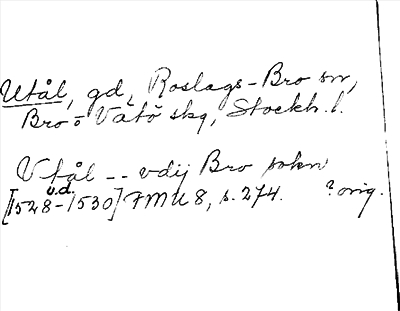 Utål, gd, Roslags-Bro sn,
Bro o Vätö skg, Stockh. l.
Vtål -- vdij Bro sokn
u.d.
[1528-1530] FMU 8, s. 274. ? orig.